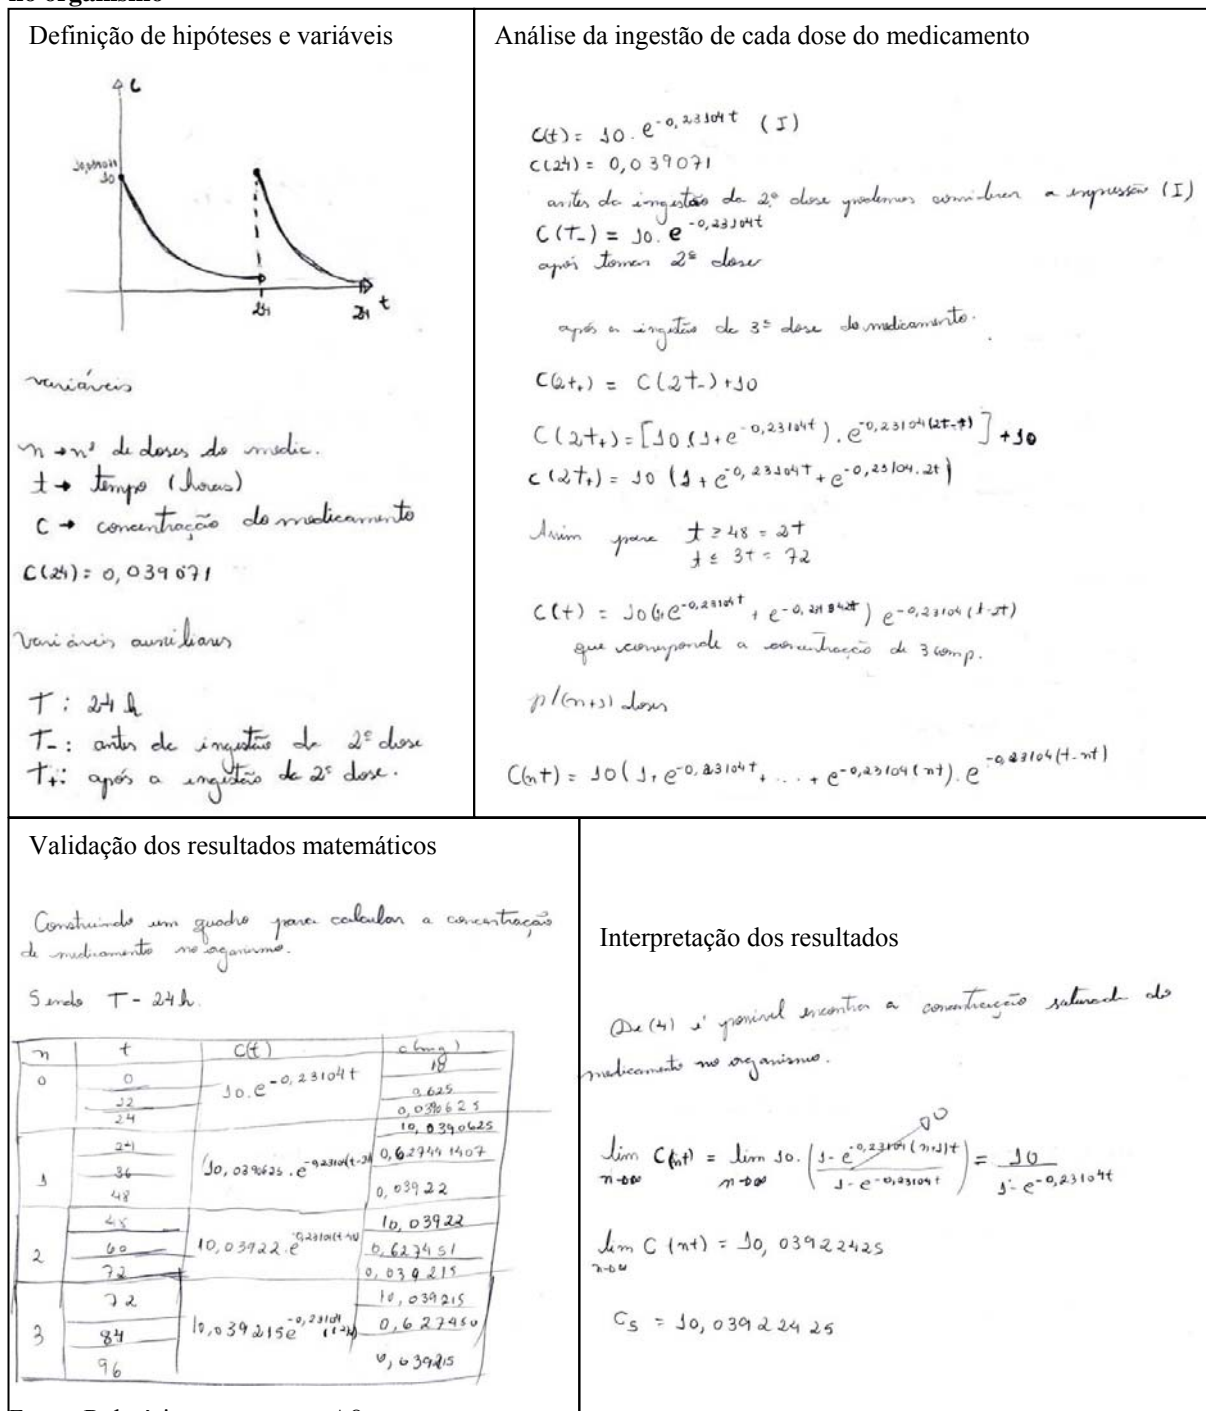 no organismo
Definição de hipóteses e variáveis
C
10
24
t
variáveis
n → nº de doses do medic.
t → tempo (horas)
C → concentração do medicamento
C(24) = 0,039071
Variáveis auxiliares
T : 24 h
T₋ : antes de ingestão da 2ª dose
T₊ : após a ingestão da 2ª dose.
Análise da ingestão de cada dose do medicamento
C(t) = 10 . e^-0,23104t (I)
C(24) = 0,039071
antes da ingestão da 2ª dose podemos considerar a expressão (I)
C(T₋) = 10. e^-0,23104t
após tomar 2ª dose
após a ingestão da 3ª dose do medicamento.
C(2t₊) = C(2t₋) + 10
C(2t₊) = [10.(1+e^-0,23104t) . e^-0,23104(2t-t)] + 10
C(2t₊) = 10 (1 + e^-0,23104t + e^-0,23104.2t)
Assim para t ≥ 48 = 2t
t ≤ 3t = 72
C(t) = 10( e^-0,23104t + e ) e^-0,23104(t-2t)
que corresponde a concentração de 3 comp.
p/(n+1) doses
C(nt) = 10(1+ e^-0,23104t + ... + e^-0,23104(nt)) . e^-0,23104(t-nt)
Validação dos resultados matemáticos
Construindo um quadro para calcular a concentração
de medicamento no organismo.
Sendo T - 24h.
n t C(t) c(mg)
0 0 10.e^-0,23104t 10
12 0,625
24 0,0390625
1 24 10,0390625.e^-0,23104(t-24) 10,0390625
36 0,627441407
48 0,03922
2 48 10,03922.e 10,03922
60 0,627451
72 0,039215
3 72 10,039215e 10,039215
84 0,627450
96 0,039215
Interpretação dos resultados
De (4) é possível encontrar a concentração saturada do
medicamento no organismo.
lim n→∞ C(nt) = lim n→∞ 10. (1 - e^-0,23104(n+1)t / 1 - e^-0,23104t) = 10 / 1 - e^-0,23104t
lim n→∞ C(nt) = 10,03922425
C_S = 10,03922425